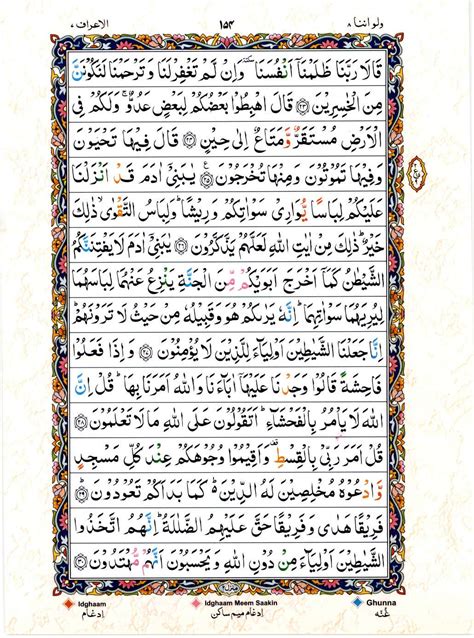 ولو اننا ٨ ١٥٤ الاعراف ٧
قَالَا رَبَّنَا ظَلَمْنَاۤ اَنْفُسَنَا ٚ وَاِنْ لَّمْ تَغْفِرْلَنَا وَتَرْحَمْنَا لَنَكُوْنَنَّ
مِنَ الْخٰسِرِيْنَ ﴿۲۳﴾ قَالَ اهْبِطُوْا بَعْضُكُمْ لِبَعْضٍ عَدُوٌّ ۚ وَلَكُمْ فِى
الْاَرْضِ مُسْتَقَرٌّ وَّمَتَاعٌ اِلٰى حِيْنٍ ﴿۲۴﴾ قَالَ فِيْهَا تَحْيَوْنَ
وَفِيْهَا تَمُوْتُوْنَ وَمِنْهَا تُخْرَجُوْنَ ﴿۲۵﴾ يٰبَنِىْۤ اٰدَمَ قَدْ اَنْزَلْنَا
عَلَيْكُمْ لِبَاسًا يُّوَارِىْ سَوْاٰتِكُمْ وَرِيْشًا ؕ وَلِبَاسُ التَّقْوٰى ۙ ذٰلِكَ
خَيْرٌ ؕ ذٰلِكَ مِنْ اٰيٰتِ اللّٰهِ لَعَلَّهُمْ يَذَّكَّرُوْنَ ﴿۲۶﴾ يٰبَنِىْۤ اٰدَمَ لَا يَفْتِنَنَّكُمُ
الشَّيْطٰنُ كَمَاۤ اَخْرَجَ اَبَوَيْكُمْ مِّنَ الْجَنَّةِ يَنْزِعُ عَنْهُمَا لِبَاسَهُمَا
لِيُرِيَهُمَا سَوْاٰتِهِمَا ؕ اِنَّهٗ يَرٰىكُمْ هُوَ وَقَبِيْلُهٗ مِنْ حَيْثُ لَا تَرَوْنَهُمْ ؕ
اِنَّا جَعَلْنَا الشَّيٰطِيْنَ اَوْلِيَآءَ لِلَّذِيْنَ لَا يُؤْمِنُوْنَ ﴿۲۷﴾ وَاِذَا فَعَلُوْا
فَاحِشَةً قَالُوْا وَجَدْنَا عَلَيْهَاۤ اٰبَآءَنَا وَاللّٰهُ اَمَرَنَا بِهَا ؕ قُلْ اِنَّ
اللّٰهَ لَا يَاْمُرُ بِالْفَحْشَآءِ ؕ اَتَقُوْلُوْنَ عَلَى اللّٰهِ مَا لَا تَعْلَمُوْنَ ﴿۲۸﴾
قُلْ اَمَرَ رَبِّىْ بِالْقِسْطِ ۟ وَاَقِيْمُوْا وُجُوْهَكُمْ عِنْدَ كُلِّ مَسْجِدٍ
وَّادْعُوْهُ مُخْلِصِيْنَ لَهُ الدِّيْنَ ؕ كَمَا بَدَاَكُمْ تَعُوْدُوْنَ ﴿۲۹﴾
فَرِيْقًا هَدٰى وَفَرِيْقًا حَقَّ عَلَيْهِمُ الضَّلٰلَةُ ؕ اِنَّهُمُ اتَّخَذُوا
الشَّيٰطِيْنَ اَوْلِيَآءَ مِنْ دُوْنِ اللّٰهِ وَيَحْسَبُوْنَ اَنَّهُمْ مُّهْتَدُوْنَ ﴿۳۰﴾
Idghaam Idghaam Meem Saakin Ghunna
اِدغام اِدغام میم ساکن غُنّه